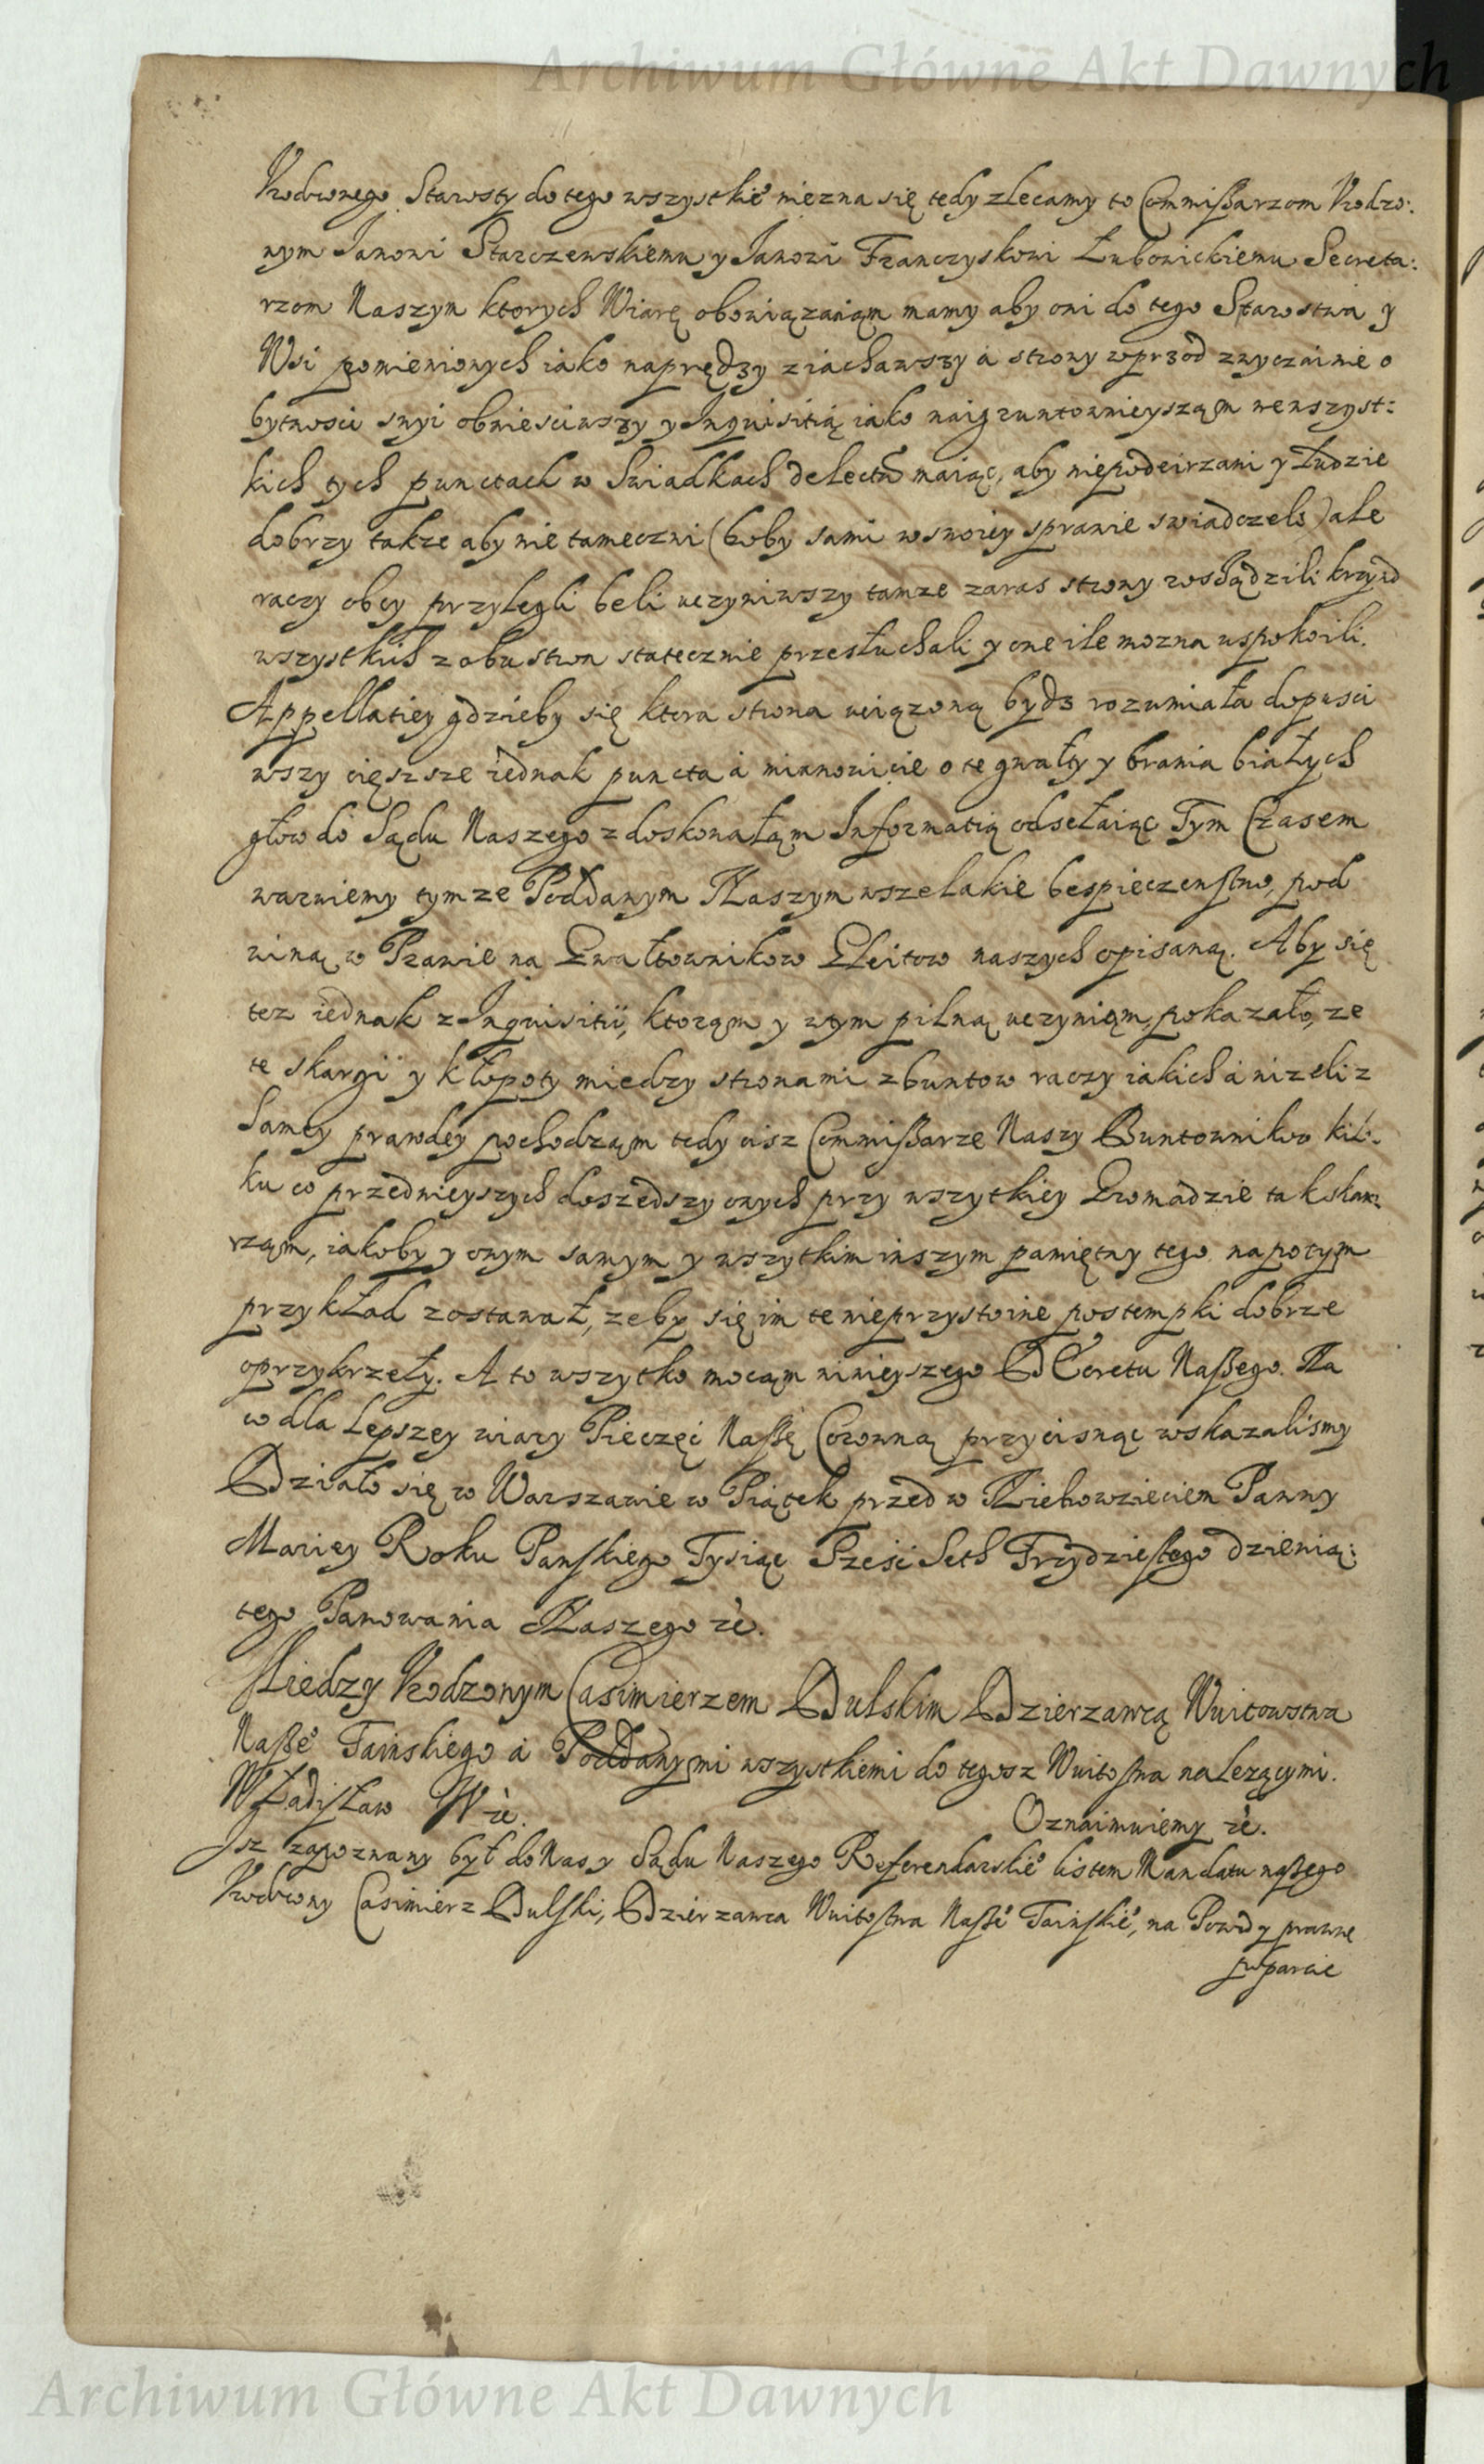 Archiwum Główne Akt Dawnych
Vrodzonego Starosty do tego wszystkie° niezna się tedy zlecamy to Commißarzom Vrodzo:
nym Janowi Starczewskiemu y Janowi Franczyskowi Łubowickiemu Secreta:
rzom Naszym ktorych Wiarę obowiązaniąm mamy aby oni do tego Starostwa y
Wsi pomienionych iako naprędzy ziachawszy á strony wprzod zwyczainie o
bytnosci swyi obwiesciwszy y Inquisitią iako naigruntownieysząm wewszyst:
kich tych punctach w Swiadkach delectū maiąc, aby niepodeirzani y Ludzie
dobrzy takze aby nie tameczni (boby sami w swoiey sprawie swiadczeli) ale
raczy obcy przylegli beli uczyniwszy tamze zaras strony rossądzili krzywd
wszystkich z obu stron statecznie przesłuchali y one ile mozna uspokoili.
Appellatiey gdzieby się ktora strona uciązoną bydz rozumiała dopusci
wszy cięszsze iednak puncta á mianowicie o te gwałty y brania białych
głow do Sądu Naszego z doskonałąm Informatią odsełaiąc Tym Czasem
waruiemy tymze Poddanym Naszym wszelakie bespieczenstwo, pod
winą w Prawie na Gwałtownikow Gleitow naszych opisaną. Aby się
tez iednak z Inquisitii, ktorąm y wtym pilną uczynięm, pokazało, ze
te skargi y kłopoty miedzy stronami z buntow raczy iakich á nizeli z
Samey prawdey pochodząm tedy cisz Commißarze Naszy Buntownikow kil:
ku co przednieyszych doszedszy onych przy wszytkiey Gromadzie tak skar:
rząm, iakoby y onym samym y wszytkim inszym pamiętny tego napotym
przykład zostawał, zeby się im te nieprzystoine postempki dobrze
oprzykrzeły. A to wszytko mocąm ninieyszego Decretu Naßego. Na
co dla Lepszey wiary Pieczęć Naßę Coronną przycisnąc wskazalismy
Działo się w Warszawie w Piątek przed w Niebowzieciem Panny
Mariey Roku Panskiego Tysiąc Szesc Seth Trzydziestego dziewią:
tego Panowania Naszego ꝛc.
Miedzy Vrodzonym Casimierzem Dulskim Dzierzawcą Wuitowstwa
Naße° Fainskiego á Poddanymi wszystkiemi do tegosz Wuitostwa nalezącymi.
Władisław IV ꝛc. Oznaimuiemy ꝛc.
Isz zapoznany był do Nas y Sądu Naszego Referendarskie° listem Mandatu naßego
Vrodzony Casimierz Dulski, Dzierzawca Wuitostwa Naße° Fainskie°, na Powod y prawne
poparcie
Archiwum Główne Akt Dawnych